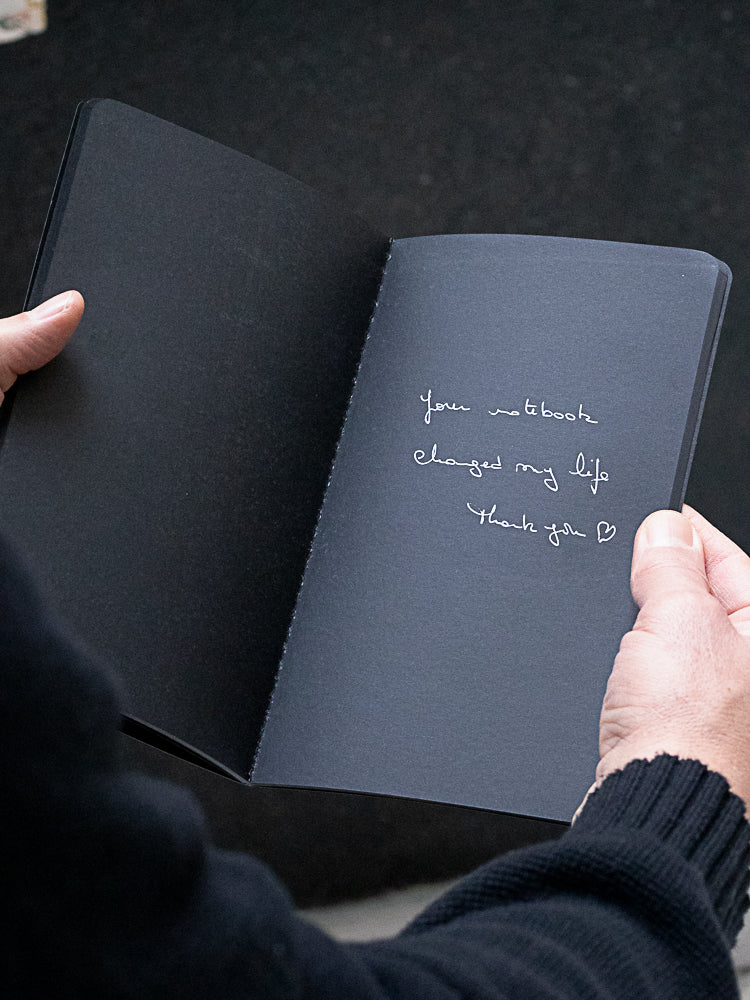 Your notebook
changed my life
Thank you ♡